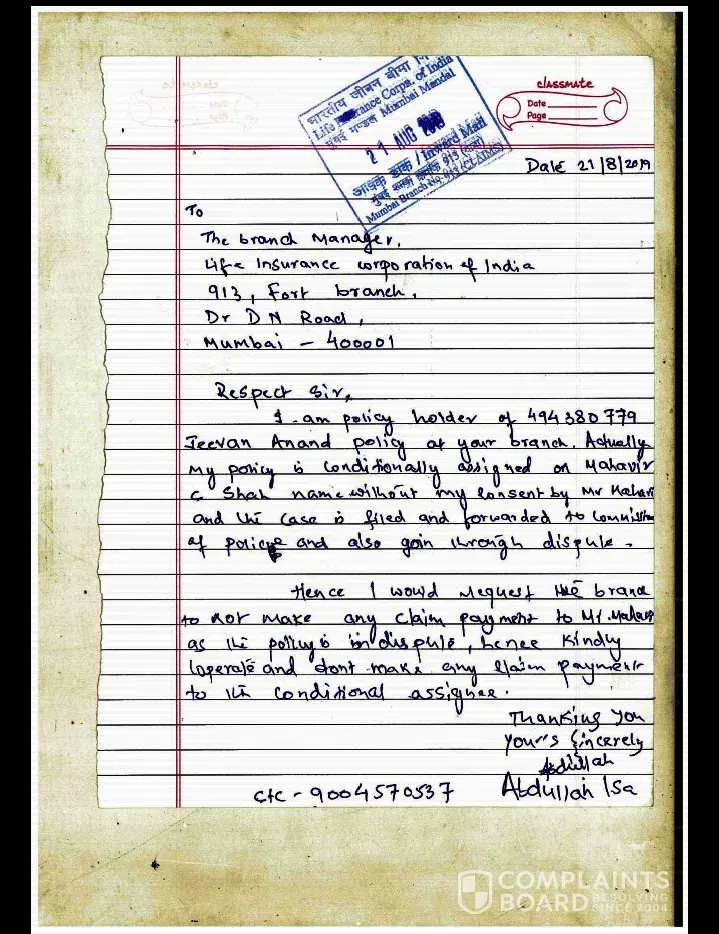 भारतीय जीवन बीमा
Life Insurance Corpn. of India
मुंबई मण्डल Mumbai Mandal
21 AUG 2019
आवक डाक / Inward Mail
मुंबई शाखा क्रमांक 913 (दावा)
Mumbai Branch No. 913 (CLAIMS)
classmate
Date
Page
Date 21/8/2019
To
The branch Manager,
Life Insurance corporation of India
913, Fort branch,
Dr D N Road,
Mumbai - 400001
Respect Sir,
I am policy holder of 494380779
Jeevan Anand policy at your branch. Actually
my policy is conditionally assigned on Mahavir
c Shah name without my consent by Mr Mahavi
and the case is filed and forwarded to Commission
of police and also goin through dispute.
Hence I would request the branc
to not make any claim payment to Mr. Mahavi
as the policy is in dispute, hence kindly
Coperate and dont make any claim payment
to the conditional assignee.
Thanking You
Your's Sincerely
Abdullah
Abdullah Isa
ctc - 9004570537
COMPLAINTS
BOARD RESOLVING
SINCE 2004